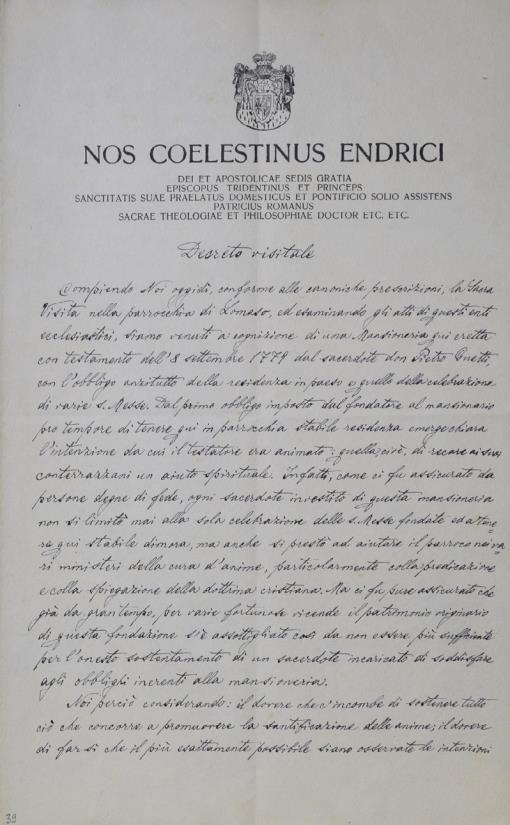 NOS COELESTINUS ENDRICI
DEI ET APOSTOLICAE SEDIS GRATIA
EPISCOPUS TRIDENTINUS ET PRINCEPS
SANCTITATIS SUAE PRAELATUS DOMESTICUS ET PONTIFICIO SOLIO ASSISTENS
PATRICIUS ROMANUS
SACRAE THEOLOGIAE ET PHILOSOPHIAE DOCTOR ETC. ETC.
Decreto visitale
Compiendo Noi oggidì, conforme alle canoniche prescrizioni, la Sacra
Visita nella parrocchia di Lomaso, ed esaminando gli atti di questi enti
ecclesiastici, siamo venuti a cognizione di una Mansioneria qui eretta
con testamento dell'8 settembre 1779 dal sacerdote don Pietro
con l'obbligo anzitutto della residenza in paese e quello della celebrazione
di varie s. Messe. Dal primo obbligo imposto dal fondatore al mansionario
pro tempore di tenere qui in parrocchia stabile residenza emerge chiara
l'intenzione da cui il testatore era animato: quella, cioè, di recare ai suoi
conterrazzani un aiuto spirituale. Infatti, come ci fu assicurato da
persone degne di fede, ogni sacerdote investito di questa mansioneria
non si limitò mai alla sola celebrazione delle s. Messe fondate ed a tene=
re qui stabile dimora, ma anche si prestò ad aiutare il parroco nei va=
ri ministeri della cura d'anime, particolarmente colla predicazione
e colla spiegazione della dottrina cristiana. Ma ci fu pure assicurato che
già da gran tempo, per varie fortunose vicende il patrimonio originario
di questa fondazione s'è assottigliato così da non essere più sufficiente
per l'onesto sostentamento di un sacerdote incaricato di soddisfare
agli obblighi inerenti alla mansioneria.
Noi perciò considerando: il dovere che c'incombe di sostenere tutto
ciò che concorre a promuovere la santificazione delle anime; il dovere
di far sì che il più esattamente possibile siano osservate le intenzioni
39